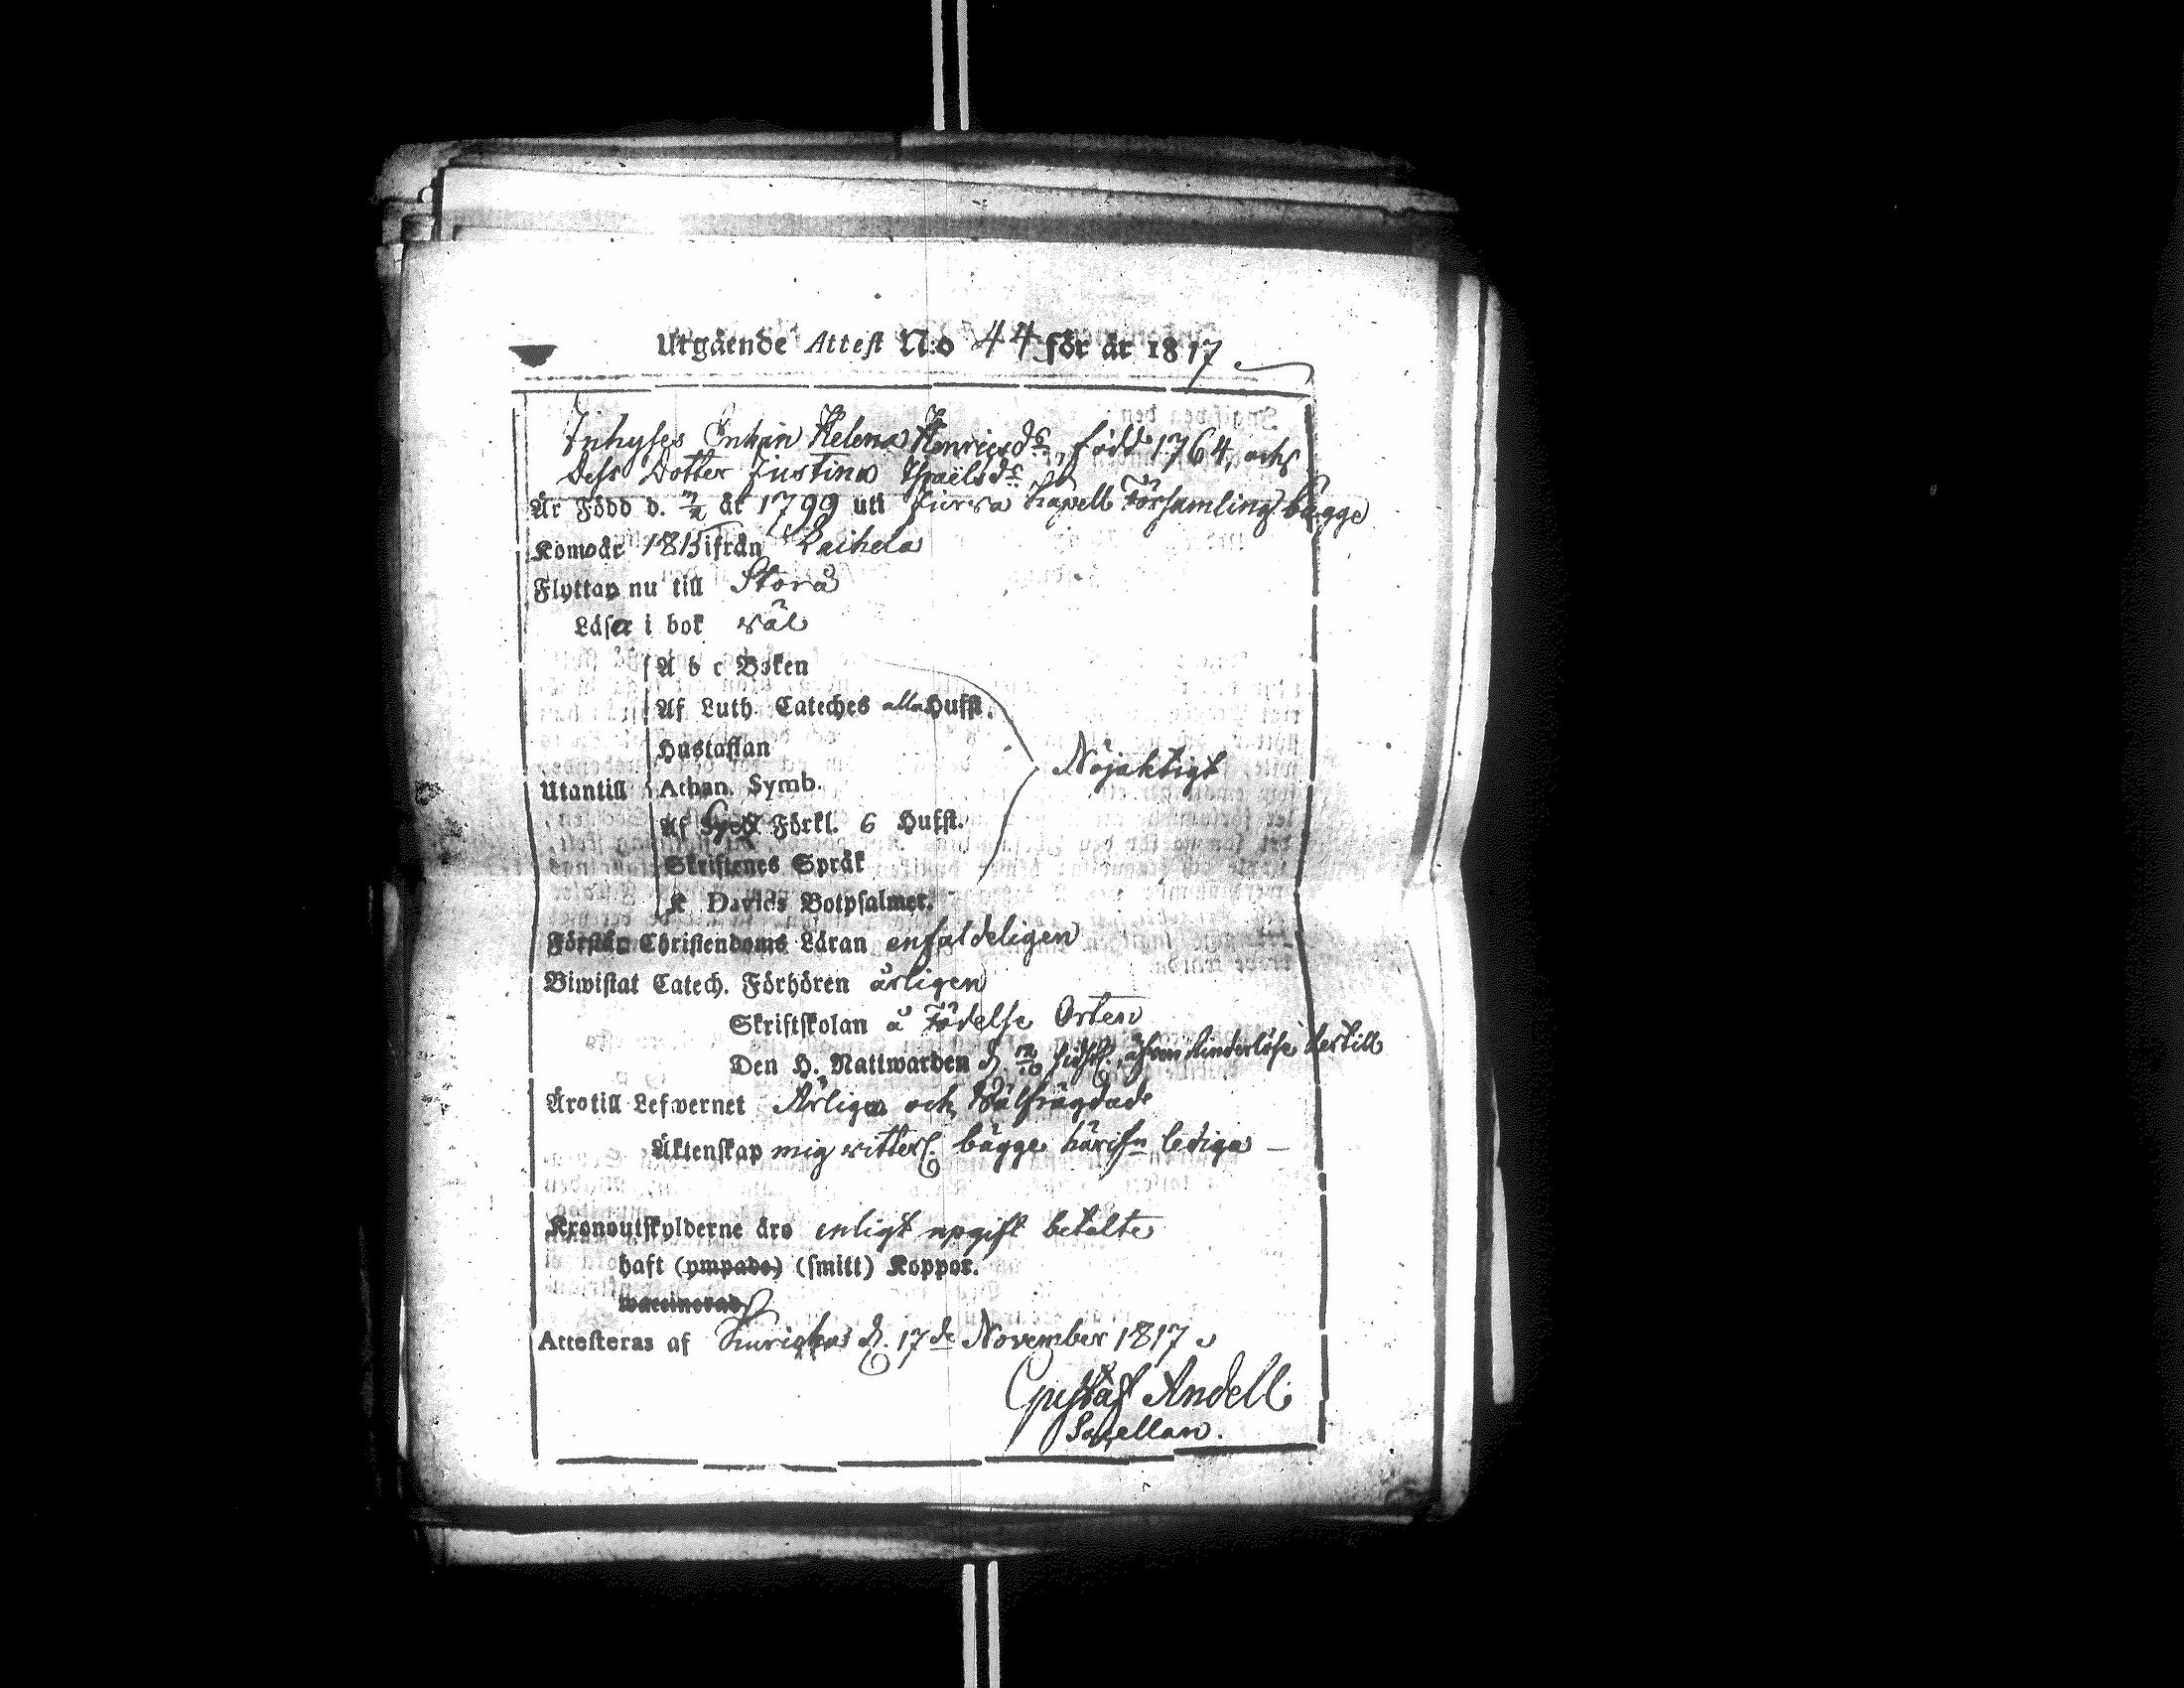 Utgående Attest N:o 44 för år 1817
Inhyses Enkan Helena Henricsdr, född 1764, och
dess Dotter Justina Israëlsdr
Är Född d. 7/2 år 1799 uti Jurva Kapell Församling bägge
Komo år 1815 ifrån Laihela
Flyttar nu till Storå
Läsa i bok väl
A b c Boken
Af Luth. Cateches alla Hufst.
Hustaflan
Nöjaktigt
Utantill Athan. Symb.
Af Förkl. 6 Hufst.
Skriftenes Språk
K Davids Botpsalmer.
Förstår Christendoms Läran enfaldeligen
Biwistat Catech. Förhören årligen
Skriftskolan å Födelse Orten
Den H. Nattwarden d. 12/10 sidstl. äfven hinderlöse dertill
Äro till Lefwernet Ärliga och Välfrägdade
Äktenskap mig vitterl. bägge härifrn lediga —
Kronoutskylderne äro enligt upgift betalte
haft (ympade) (smitt) Koppor.
waccinerad
Attesteras af d. 17de November 1817
Gustaf Andell
Sacellan.